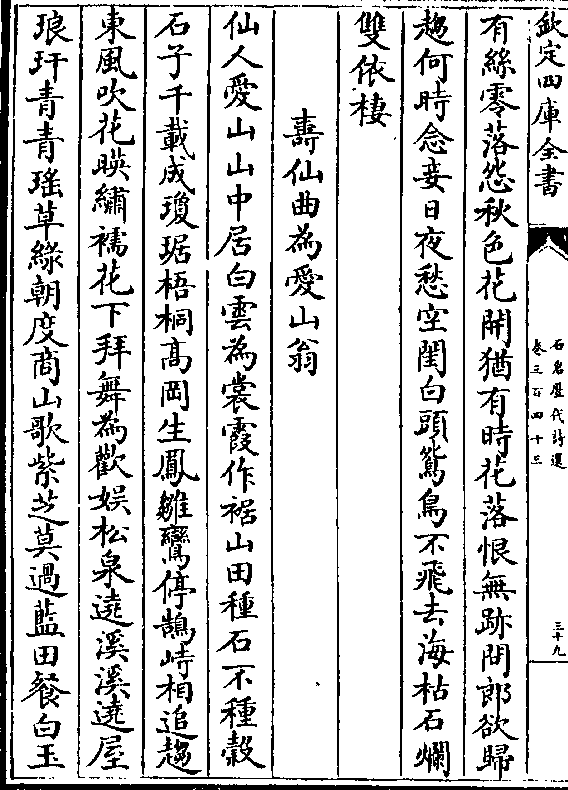 欽定四庫全書
石倉歷代詩選
卷三百四十三
三十九
有絲零落怨秋色花開猶有時花落恨無跡問郎欲歸
趍何時念妾日夜愁空閨白頭鴛鳥不飛去海枯石爛
雙依棲
壽仙曲為愛山翁
仙人愛山山中居白雲為裳霞作裾山田種石不種榖
石子千載成瓊琚梧桐髙岡生鳳雛鸞停鵠峙相追趍
東風吹花暎繡襦花下拜舞為歡娱松泉遶溪溪遶屋
琅玕青青瑶草綠朝度商山歌紫芝莫過藍田餐白玉